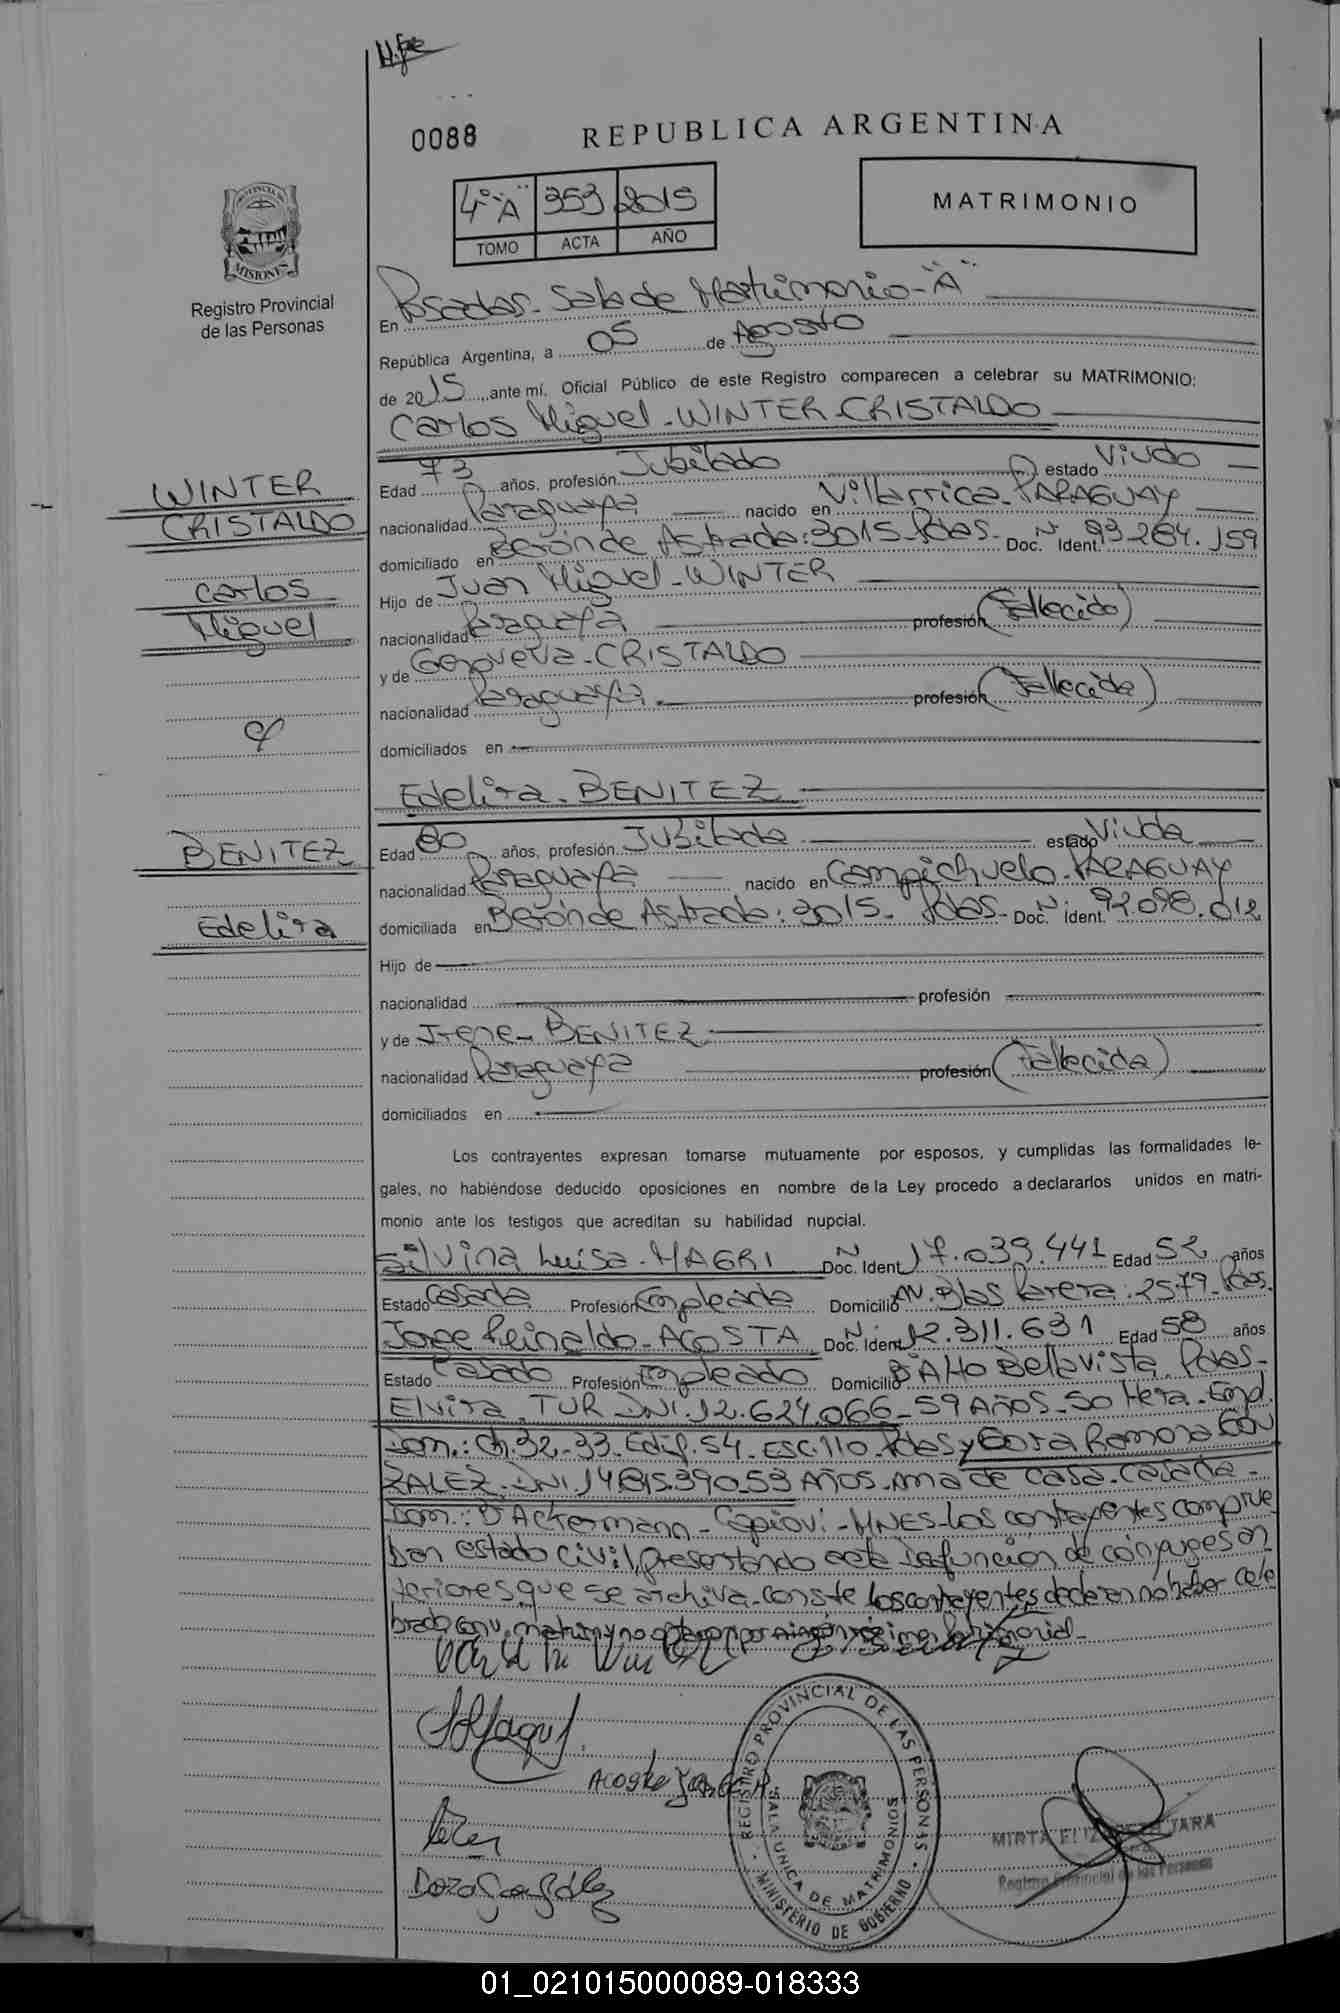 0088 REPUBLICA ARGENTINA
4º "A" 353 2015
TOMO ACTA AÑO
MATRIMONIO
PROVINCIA DE MISIONES
Registro Provincial
de las Personas
En Posadas-Sala de Matrimonio-"A"
República Argentina, a 05 de Agosto
de 2015, ante mí, Oficial Público de este Registro comparecen a celebrar su MATRIMONIO:
Carlos Miguel-WINTER CRISTALDO
WINTER
CRISTALDO
Carlos
Miguel
Edad 73 años, profesión Jubilado estado Viudo
nacionalidad Paraguaya nacido en Villarrica-PARAGUAY
domiciliado en Berón de Astrada: 3015-Pdas- Doc. Nº Ident. 93 264.159
Hijo de Juan Miguel-WINTER
nacionalidad Paraguaya profesión (Fallecido)
y de Genoveva-CRISTALDO
nacionalidad Paraguaya profesión (Fallecida)
domiciliados en
Edelira-BENITEZ
BENITEZ
Edelira
Edad 80 años, profesión Jubilada estado Viuda
nacionalidad Paraguaya nacido en Campichuelo-PARAGUAY
domiciliada en Berón de Astrada: 3015-Pdas- Doc. Nº Ident. 92.098.012
Hijo de
nacionalidad profesión
y de Irene-BENITEZ
nacionalidad Paraguaya profesión (Fallecida)
domiciliados en
Los contrayentes expresan tomarse mutuamente por esposos, y cumplidas las formalidades le-
gales, no habiéndose deducido oposiciones en nombre de la Ley procedo a declararlos unidos en matri-
monio ante los testigos que acreditan su habilidad nupcial.
Silvina Luisa-MAGRI Doc. Nº Ident. 17.039.441 Edad 52 años
Estado Casada Profesión Empleada Domicilio Av. Blas Parera: 2579-Pdas.
Jorge Reinaldo-ACOSTA Doc. Nº Ident. 12.311.631 Edad 58 años
Estado Casado Profesión Empleado Domicilio Bº Alto Bellavista-Pdas-
Elvira-TUR DNI.12.624.066-59 Años-Soltera-Empl.
Dom.: Ch.32-33-Edif.54-Esc.110-Pdas y Dora Ramona GON
ZALEZ-DNI.14.815.390.53 Años-Ama de casa-casada-
Dom.: Bº Ackermann-Capioví-MNES-Los contrayentes comprue
ban estado civil, presentando acta defunción de cónyuges an
teriores que se archiva-conste los contrayentes declaran no haber cele
brado conv. matrim y no optaron por ningún régimen patrimonial-
Acosta Jorge R.
Dora González
REGISTRO PROVINCIAL DE LAS PERSONAS
SALA UNICA DE MATRIMONIOS
MINISTERIO DE GOBIERNO
MIRTA
Registro Provincial de las Personas
01_021015000089-018333